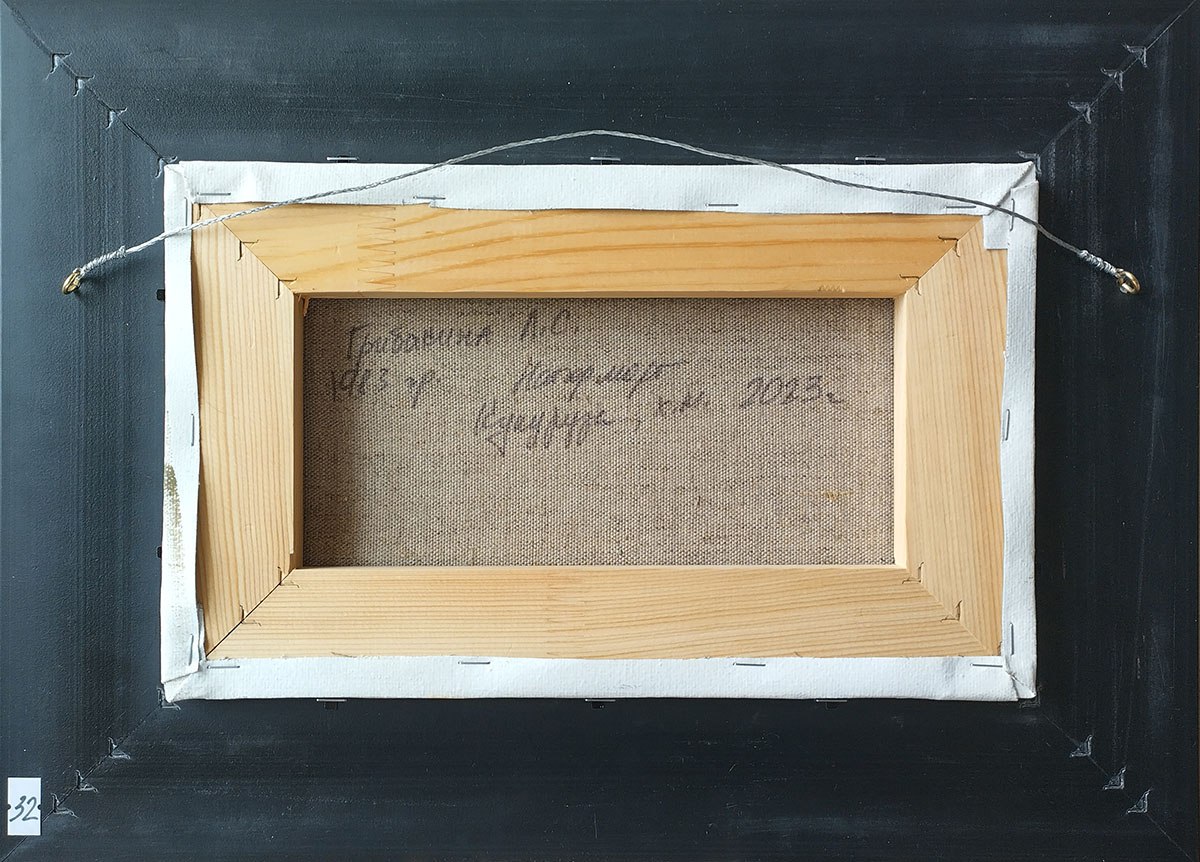 Грибанина А.С.
1983 гр. Натюрморт
Кукуруза, х.м. 2023г
32